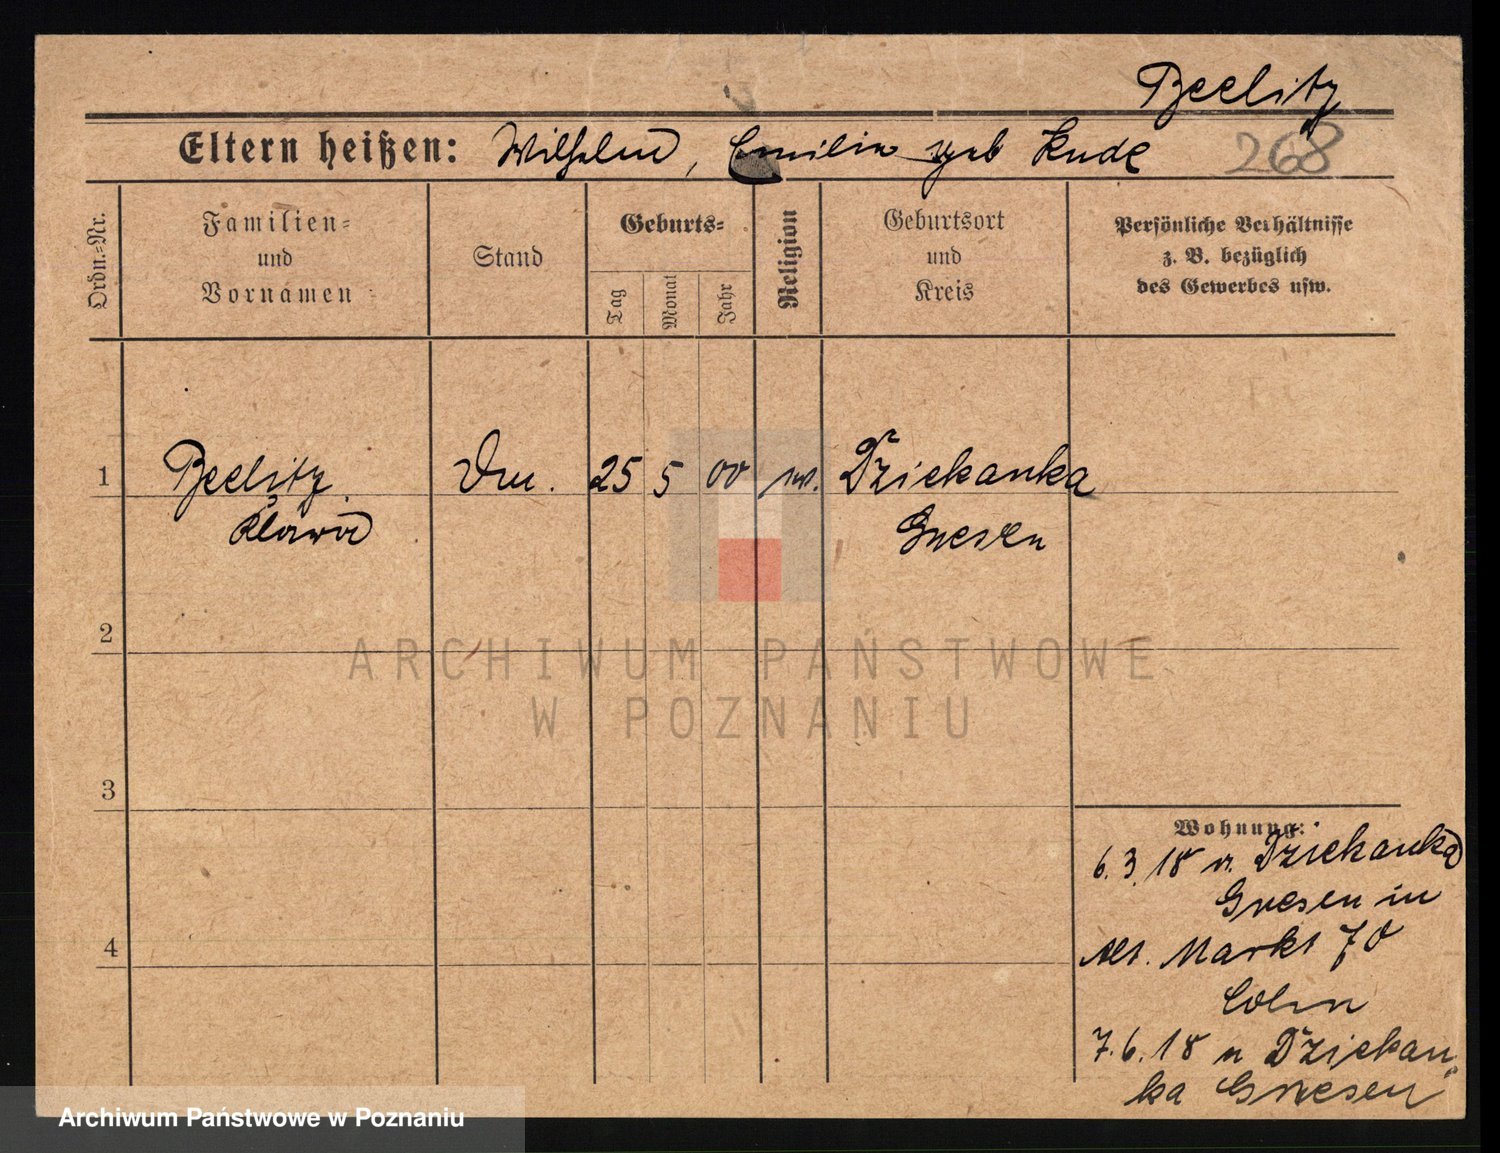 Beelitz
Eltern heißen: Wilhelm, Emilie geb Kude 268
Ordn.-Nr.
Familien- und Vornamen
Stand
Geburts-
Tag
Monat
Jahr
Religion
Geburtsort und Kreis
Persönliche Verhältnisse
z. B. bezüglich
des Gewerbes usw.
1 Beelitz Dm. 25 5 00 Dziekanka
Klara Gnesen
2
ARCHIWUM PAŃSTWOWE
W POZNANIU
3
Wohnung:
6. 3. 18 v. Dziekanka
Gnesen in
Alt. Markt 70
Cohn
4
7. 6. 18 n Dziekan
ka Gnesen
Archiwum Państwowe w Poznaniu